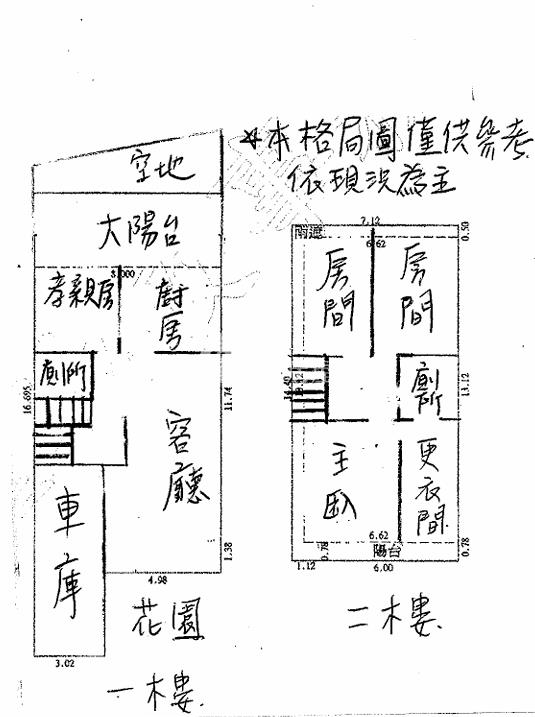 *本格局圖僅供參考
依現況為主
空地
大陽台
3.000
孝親房
廚房
廁所
16.695
11.74
客廳
車庫
1.38
4.98
3.02
花園
一木樓.
7.12
雨遮
6.62
0.50
房間
房間
14.40
13.12
13.12
廁所
主臥
更衣間
6.62
0.78
0.78
陽台
1.12
6.00
二木樓.